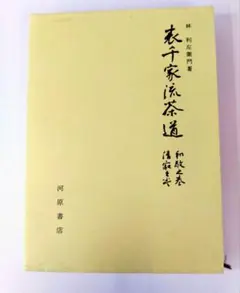 林 利左衛門著
表千家流茶道
和敬之巻
清寂之巻
河原書店